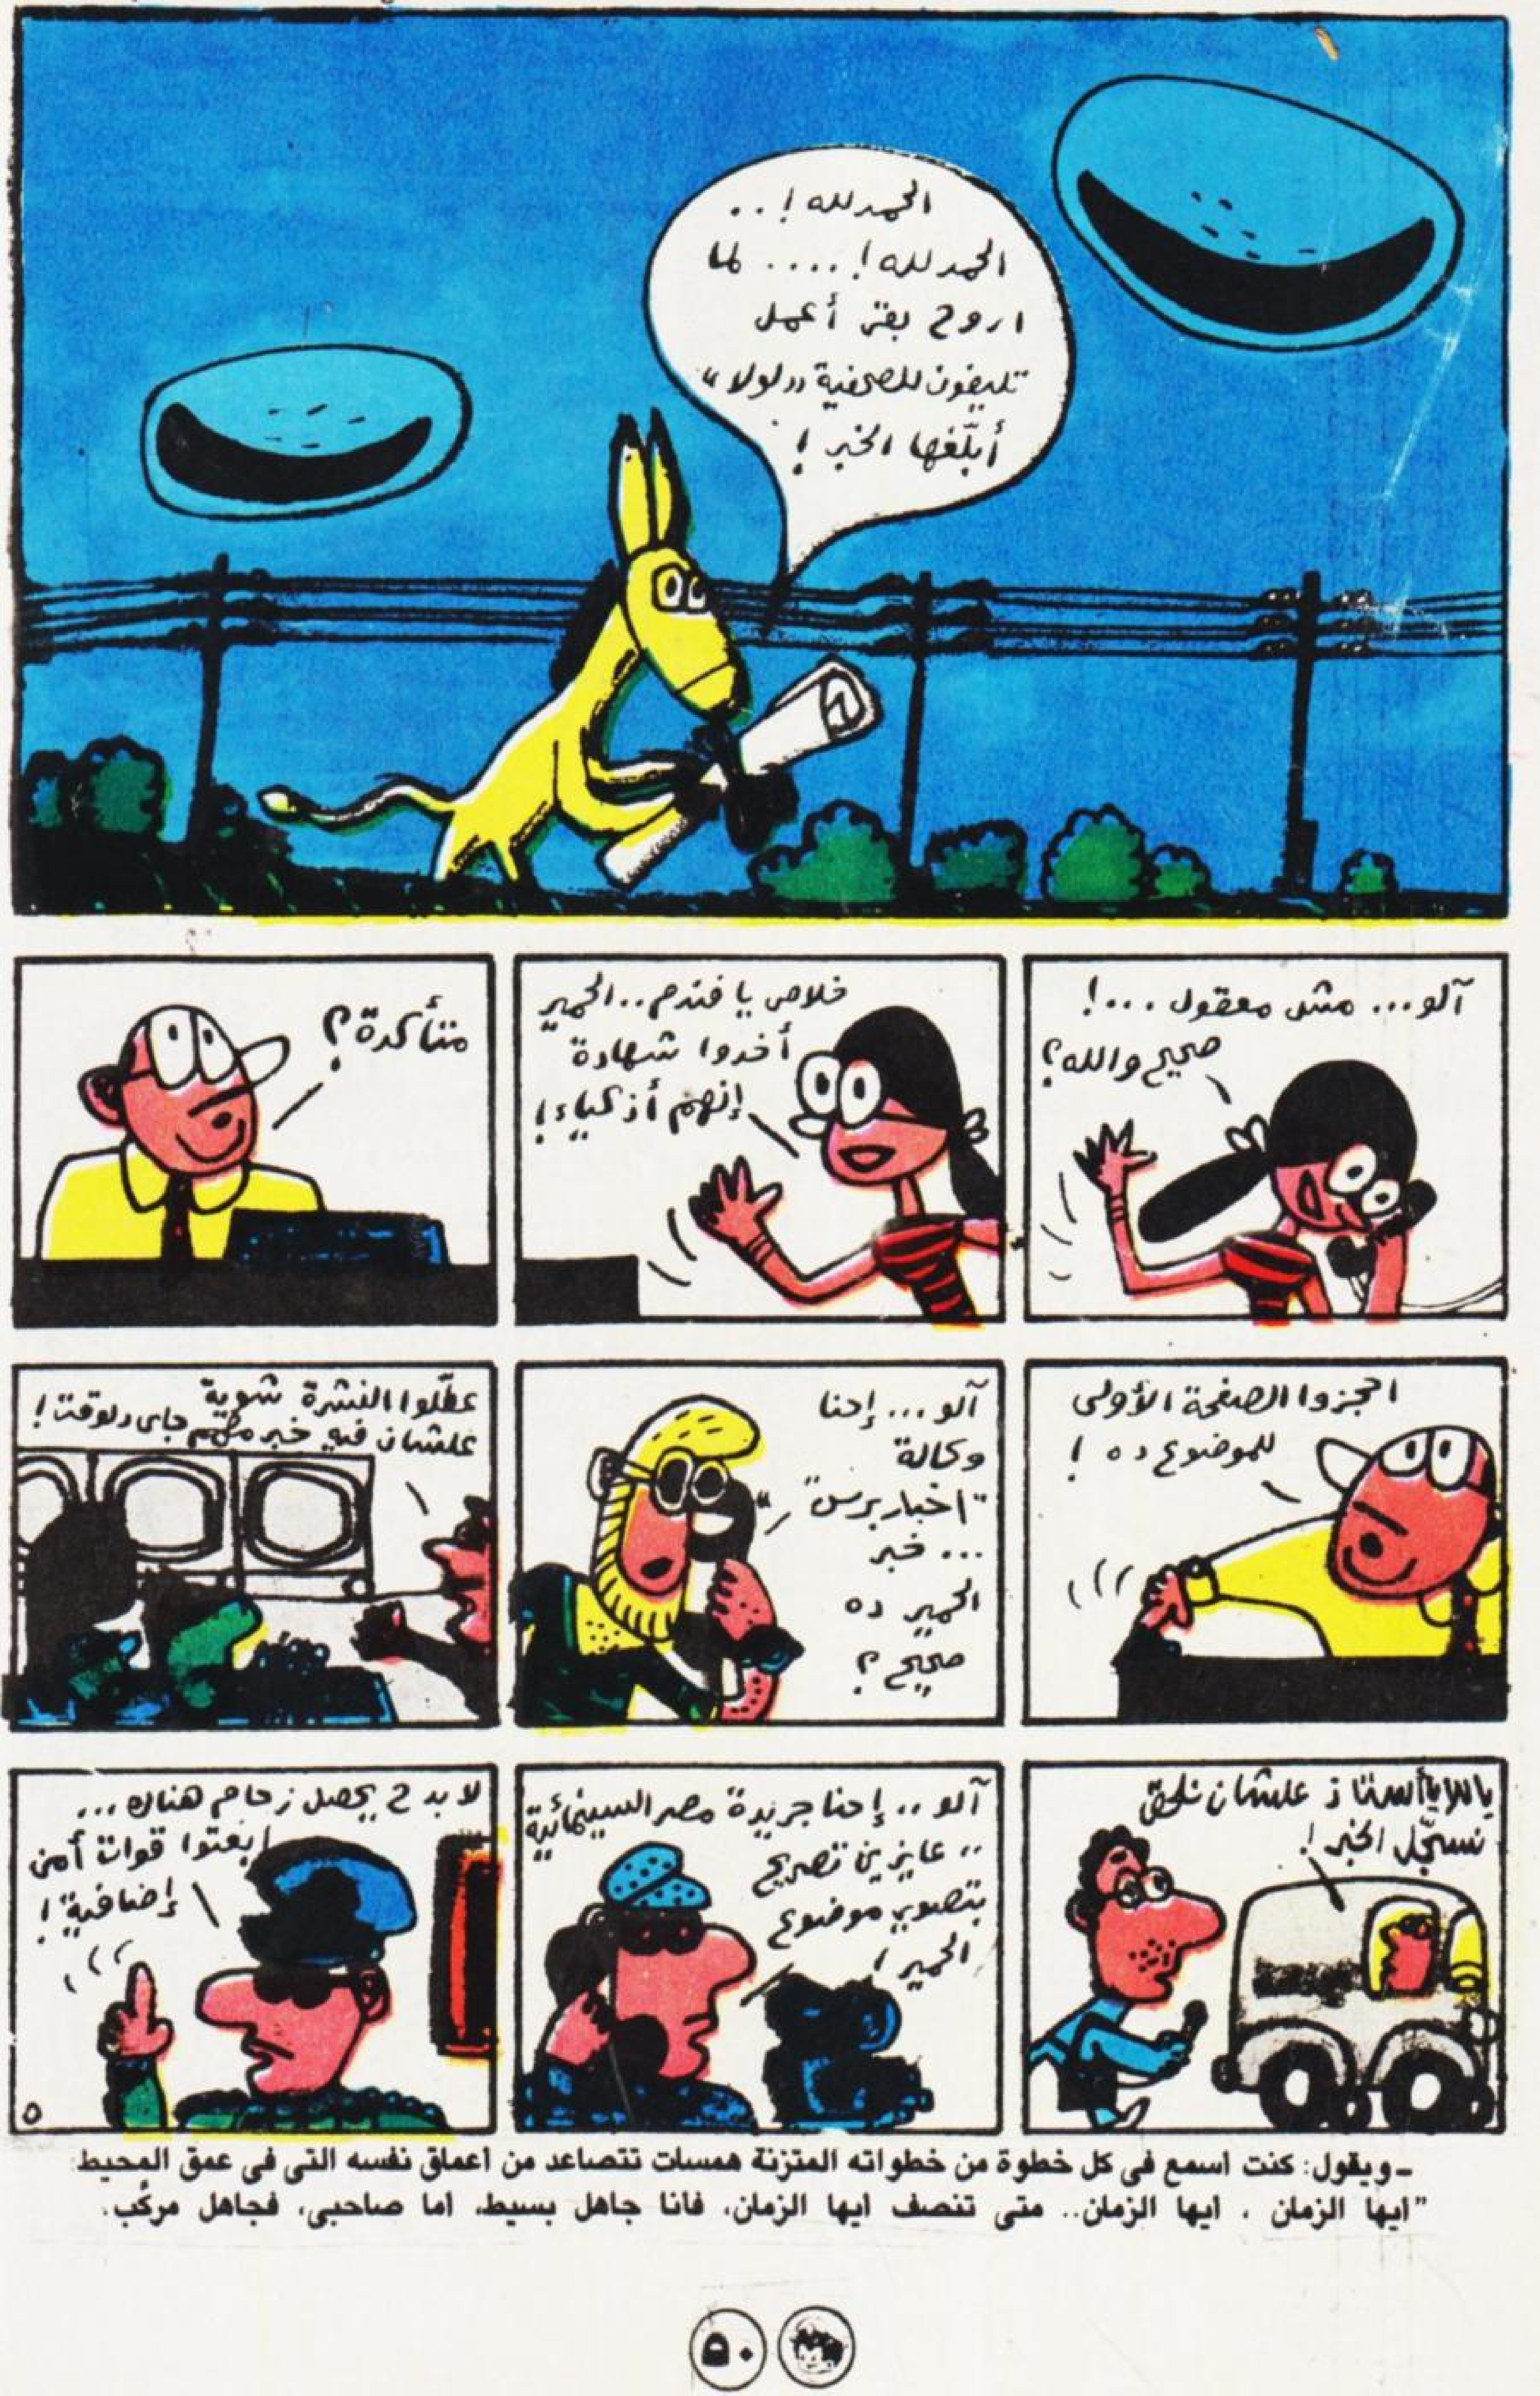 الحمد لله !..
الحمد لله !.... لما
اروح بقى أعمل
تليفون للصحفية "لولا"
أبلّغها الخبر !
آلو... مش معقول ...!
صحيح والله؟
خلاص يا فندم.. الحمير
أخدوا شهادة
إنهم أذكياء!
متأكدة؟
احجزوا الصفحة الأولى
للموضوع ده !
آلو... إحنا
وكالة
"اخبار برس"
... خبر
الحمير ده
صحيح ؟
عطّلوا النشرة شوية
علشان فيه خبر مهم جاى دلوقت !
ياللا يا أستاذ علشان نلحق
نسجّل الخبر !
آلو .. إحنا جريدة مصر السينمائية
.. عايزين تصريح
بتصوير موضوع
الحمير !
لا بد ح يحصل زحام هناك ...
ابعتوا قوات أمن
إضافية !
٥
ـ ويقول: كنت اسمع فى كل خطوة من خطواته المتزنة همسات تتصاعد من اعماق نفسه التى فى عمق المحيط:
"ايها الزمان ، ايها الزمان.. متى تنصف ايها الزمان، فانا جاهل بسيط، اما صاحبى، فجاهل مركّب.
٥٠